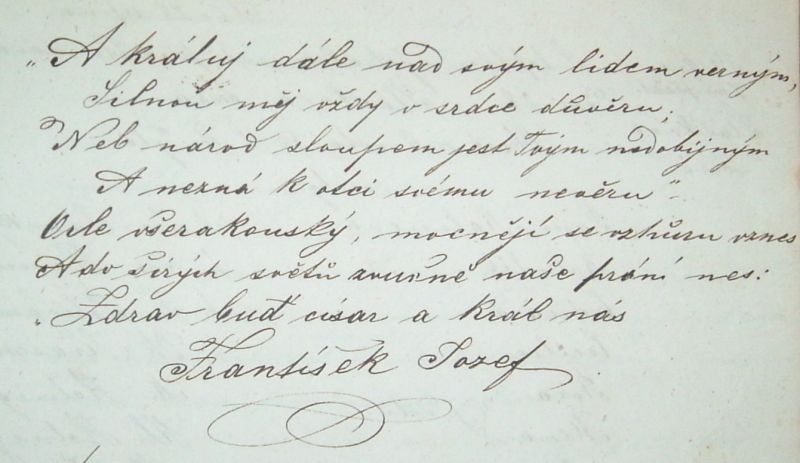 „A králuj dále nad svým lidem verným,
Silnou měj vždy v srdce důvěru;
Neb národ sloupem jest Tvým nedobijným
A nezná k otci svému nevěru“.
Orle všerakouský, mocněji se vzhůru vznes
A do širých světů zvučně naše prání nes:
„Zdrav buď císar a král nás
František Jozef